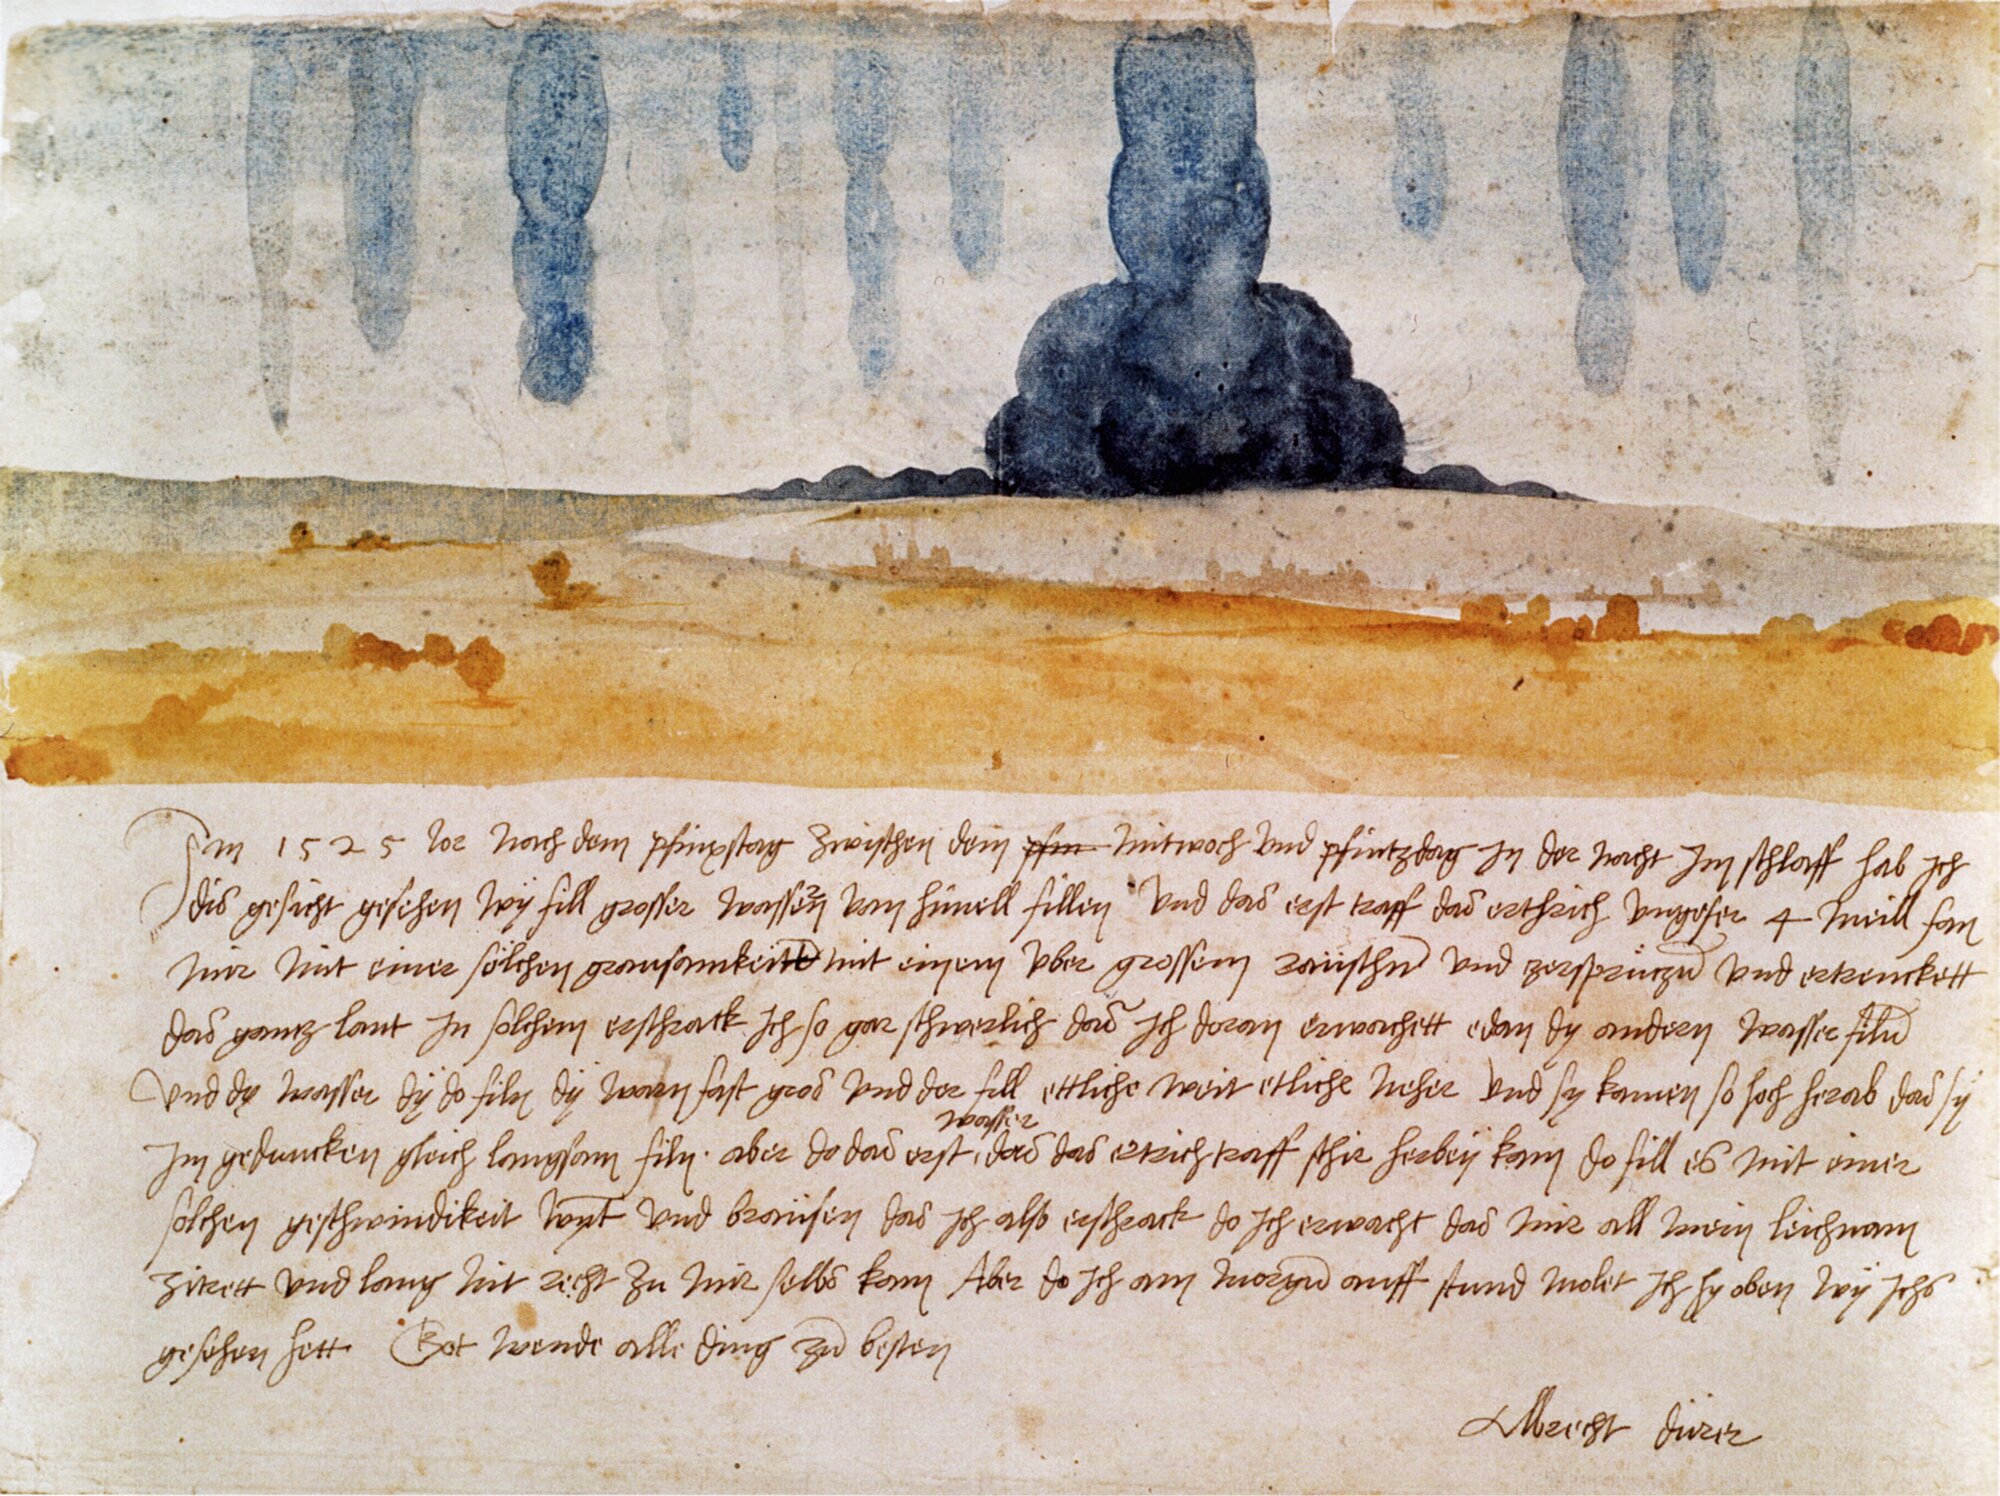 Im 1525 Jor nach dem pfinxstag zwischen dem pfin mitwoch und pfintzdag in der nacht im schlaff hab ich
dis gesicht gesehen wÿ fill grosser wassern van himell fillen Und das erst traff das erthrich ungefer 4 meill fan
mir mit einer sölchen grausamkeitt mit einem uber grossem raüschn und zersprützn und ertrenckett
das gantz lant In sölchem erschrack ich so gar schwerlich das ich doran erwachett edan dy andern wasser filn
Und dy wasser dÿ do filn dÿ warn fast gros und der fill ettliche weit etliche neher und sy kamen so hoch herab das sÿ
im gedancken gleich langsam filn. aber do das erst wasser das das ertrich traff schir herbeÿ kam do fill es mit einer
sölchen geschwindikeit wynt und braüsen das ich also erschrack do ich erwacht das mir all mein leichnam
zitrett und lang nit recht zu mir selbs kam Aber do ich am morgn auff stund molet ich hy oben wÿ ichs
gesehen hett. Got wende alle ding zu besten
Albrecht dürer